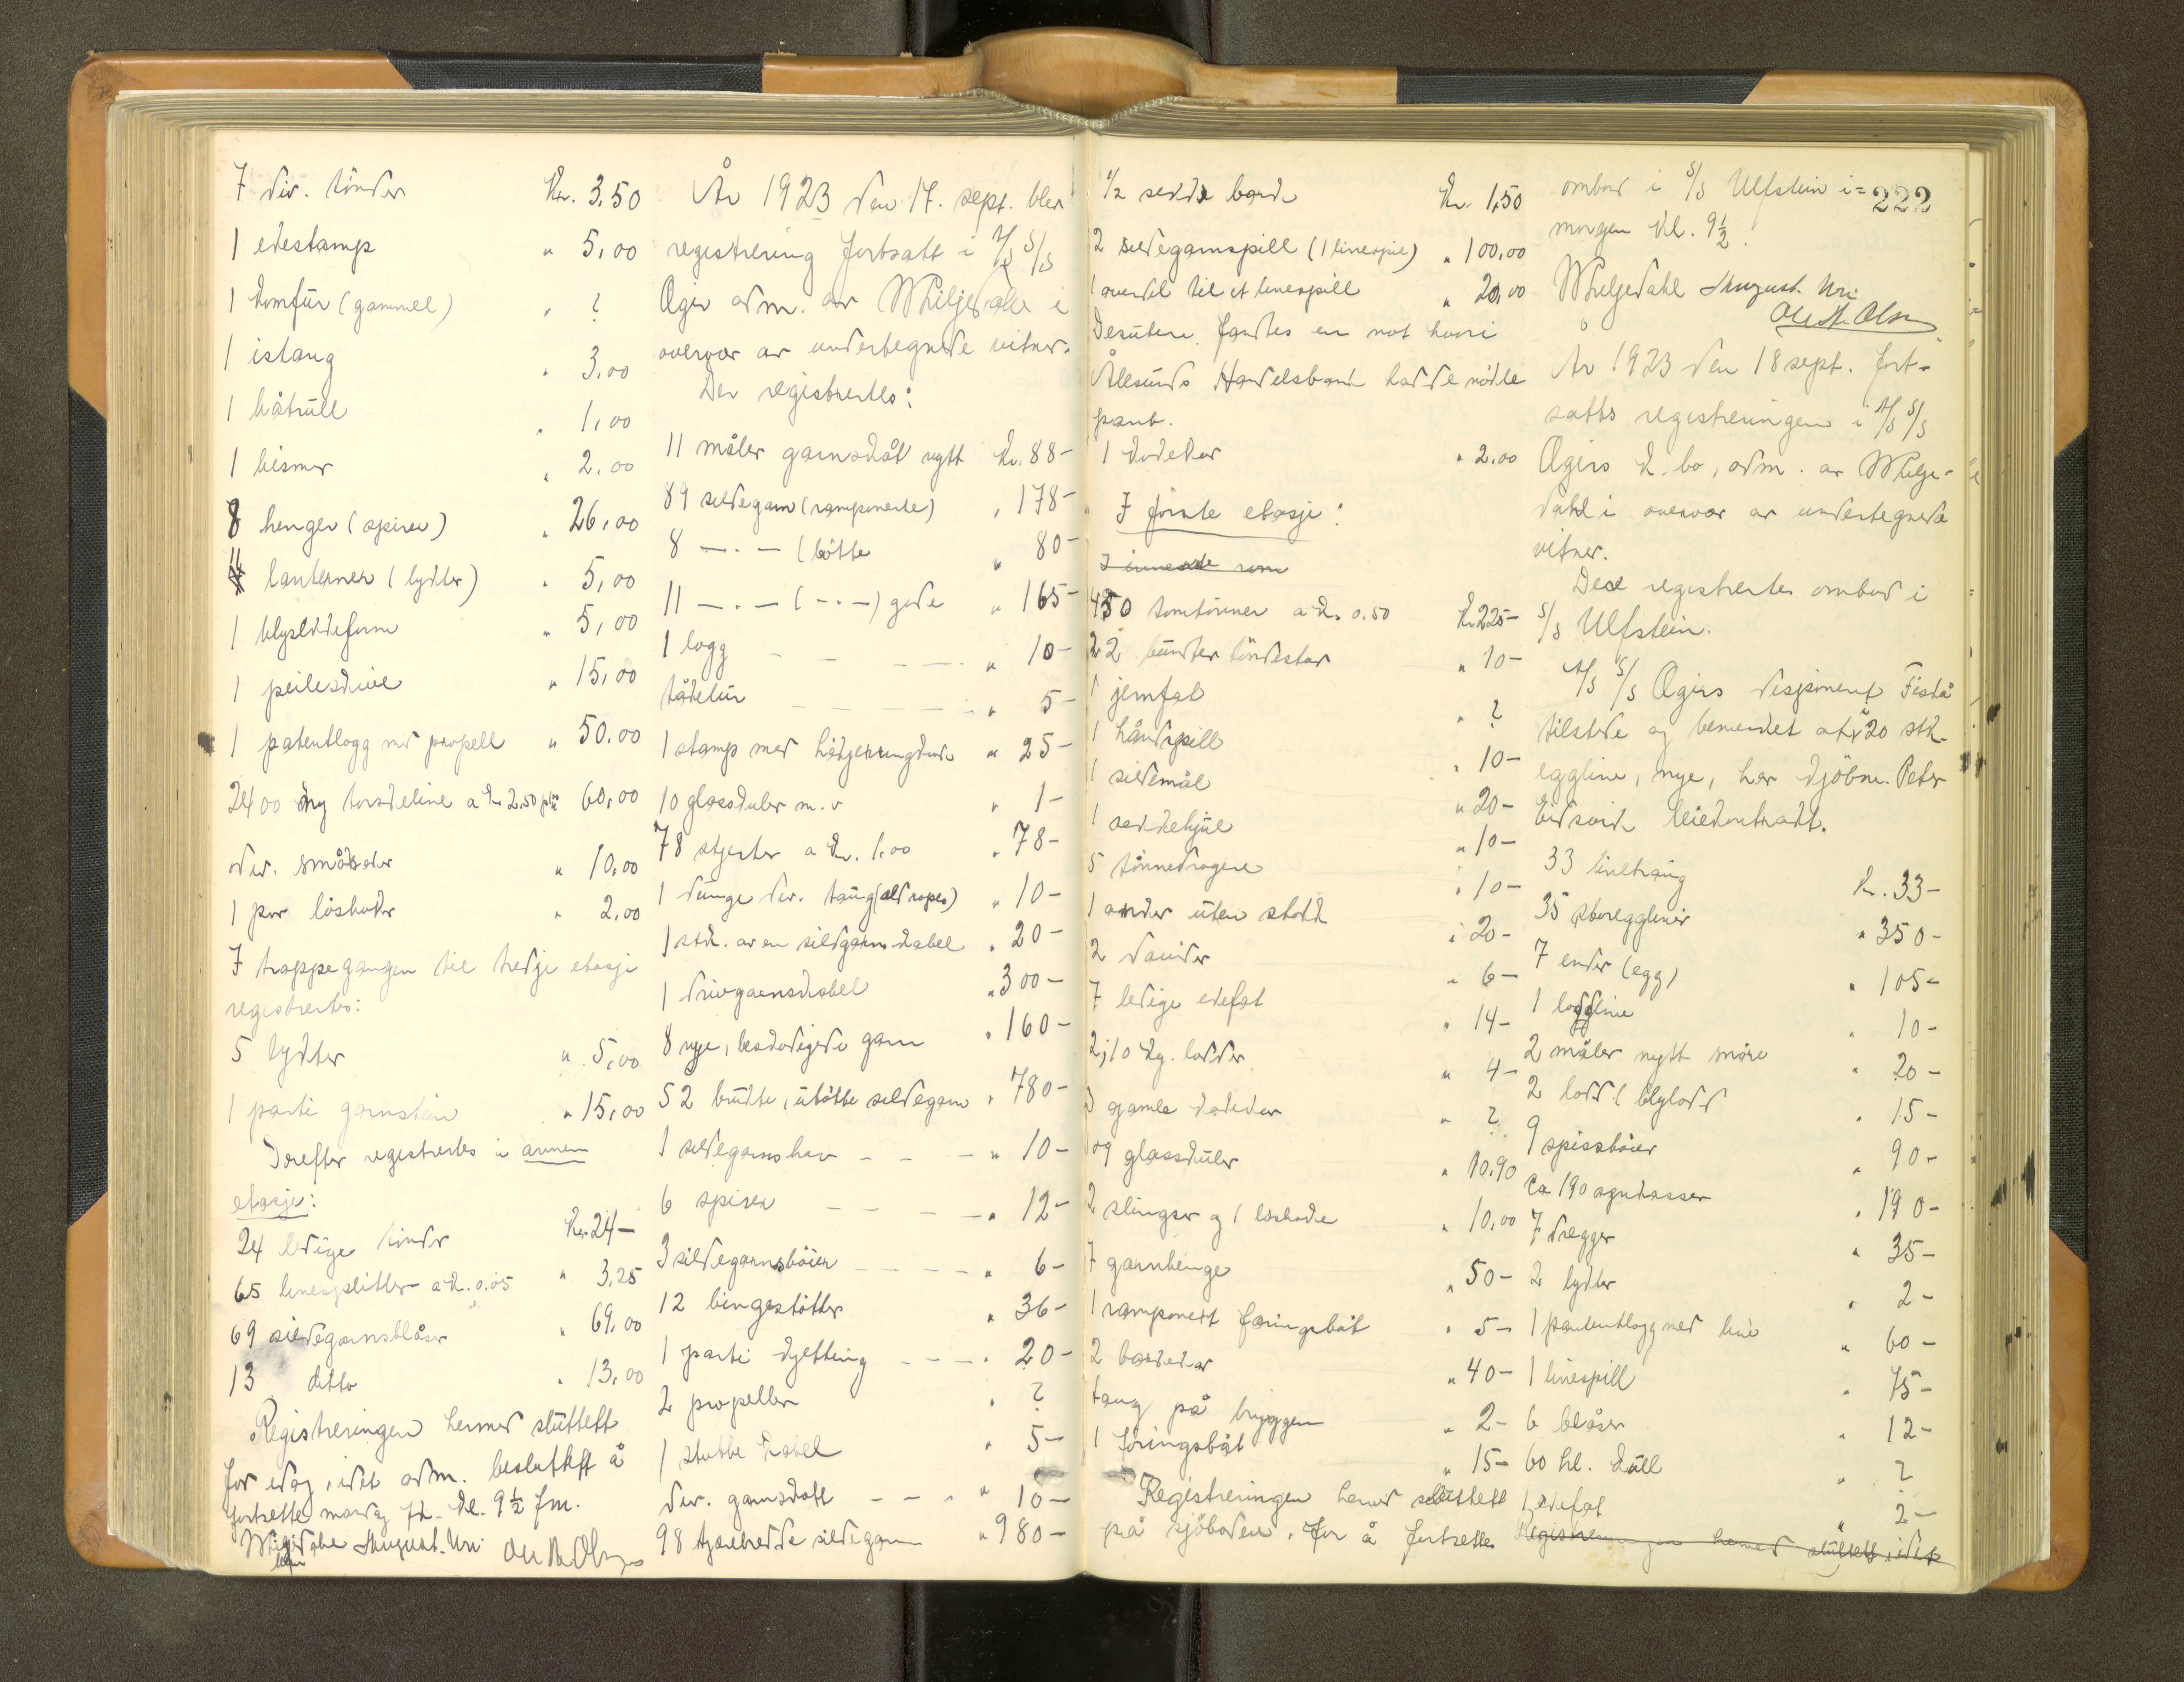 7 div. tönder Kr. 3,50
1 edestamp " 5,00
1 komfür (gammel) " ?
1 istang " 3,00
1 båtrull " 1,00
1 bismer " 2,00
8 henger (spirer) " 26,00
11 lanterner (lykter) " 5,00
1 blyloddeform " 5,00
1 peileskive " 15,00
1 patentlogg med propell " 50.00
2400 ny torskeline a kr 2,50 60,00
div. småsaker " 10,00
1 par löshoder " 2,00
I trappegangen til tredje etasje
registrertes:
5 lykter " 5,00
1 parti garnstein " 15,00
Derefter registrertes i annen
etasje:
24 ledige tönder Kr. 24-
65 linesplitter a k. 0.05 " 3,25
69 sildegarnsblåser " 69,00
13 ditto " 13,00
Registreringen hermed sluttett
for idag, idet adm. besluttet å
fortsette mandag kl. 9½ fm.
August Uri
År 1923 den 17. sept. blev
registrering fortsatt i A/S S/S
Ægir adm. av W Liljedahl i
overvær av undertegnede vitner.
Der registrertes:
11 måler garnskåt nytt Kr. 88-
89 sildegarn (ramponerte) " 178-
8 -.- (bötte " 80-
11 -.- (-.-) gode " 165-
1 logg " 10-
tåkelur " 5-
1 stamp med " 25-
10 glasskuler m.v " 1-
78 stjerter a kr. 1.00 " 78-
1 dunge div. taug (oldropes) " 10-
1 stk. av en sildgarnskabel " 20-
1 drivgarnskabel " 300-
8 nye, garn " 160-
52 brukte, sildegarn " 780-
1 sildegarnshav " 10-
6 spirer " 12-
3 sildegarnsböier " 6-
12 bingestötter " 36-
1 parti kjetting " 20-
2 propeller " ?
1 stubbe kabel " 5-
div. garnskott " 10-
98 tjærebredde sildegarn " 980-
1/2 bord Kr. 1,50
2 sildegarnspill (1 linespil) " 100,00
1 til et linespill " 20,00
Desuten fandtes en not hvori
Ålesunds Handelsbank hadde
pant.
1 " 2.00
I förste etasje:
450 tomtönner a kr. 0.50 Kr. 225-
22 bunter töndestav " 10-
1 jernfat " ?
1 håndspill " 10-
1 sildemål " 20-
1 " 10-
5 tönnedragere " 10-
1 anker uten stokk " 20-
2 davider " 6-
7 ledige edefat " 14-
2; 10 kg. lodder " 4-
3 gamle " ?
109 glasskuler " 10,90
2 slingser og 1 löshode " 10,00
7 garnhenge " 50-
1 ramponert föringsbåt " 5-
2 " 40-
taug på bryggen " 2-
1 föringsbåt " 15-
Registreringen hermed sluttett
på sjöboden, for å fortsette
222
ombord i S/S Ulfstein i=
morgen kl. 9½.
W Liljedahl August Uri
Ole A. Olsen
År 1923 den 18 sept. fort-
satts registreringen i A/S S/S
Ægirs k. bo, adm. av W Lilje-
dahl i overvær av undertegnede
vitner.
Dese registrertes ombord i
S/S Ulfstein.
A/S S/S Ægirs disponent Fiskå
tilstede og bemerket at 20 stk.
eggline, nye, har kjöbm. Peter
Eidsvik leiekontrakt.
33 linetraug Kr. 33-
35 storeggliner " 350-
7 ender (egg) " 105-
1 loddline " 10-
2 måler nytt snöre " 20-
2 lodd (blylodd " 15-
9 spissböier " 90-
Ca 190 agnkasser " 190-
7 dregger " 35-
2 lykter " 2-
1 pantentlogg med line " 60-
1 linespill " 75-
6 blåser " 12-
60 hl. kull " ?
1 edefat " 2-
Registreringen hermed sluttett, idet